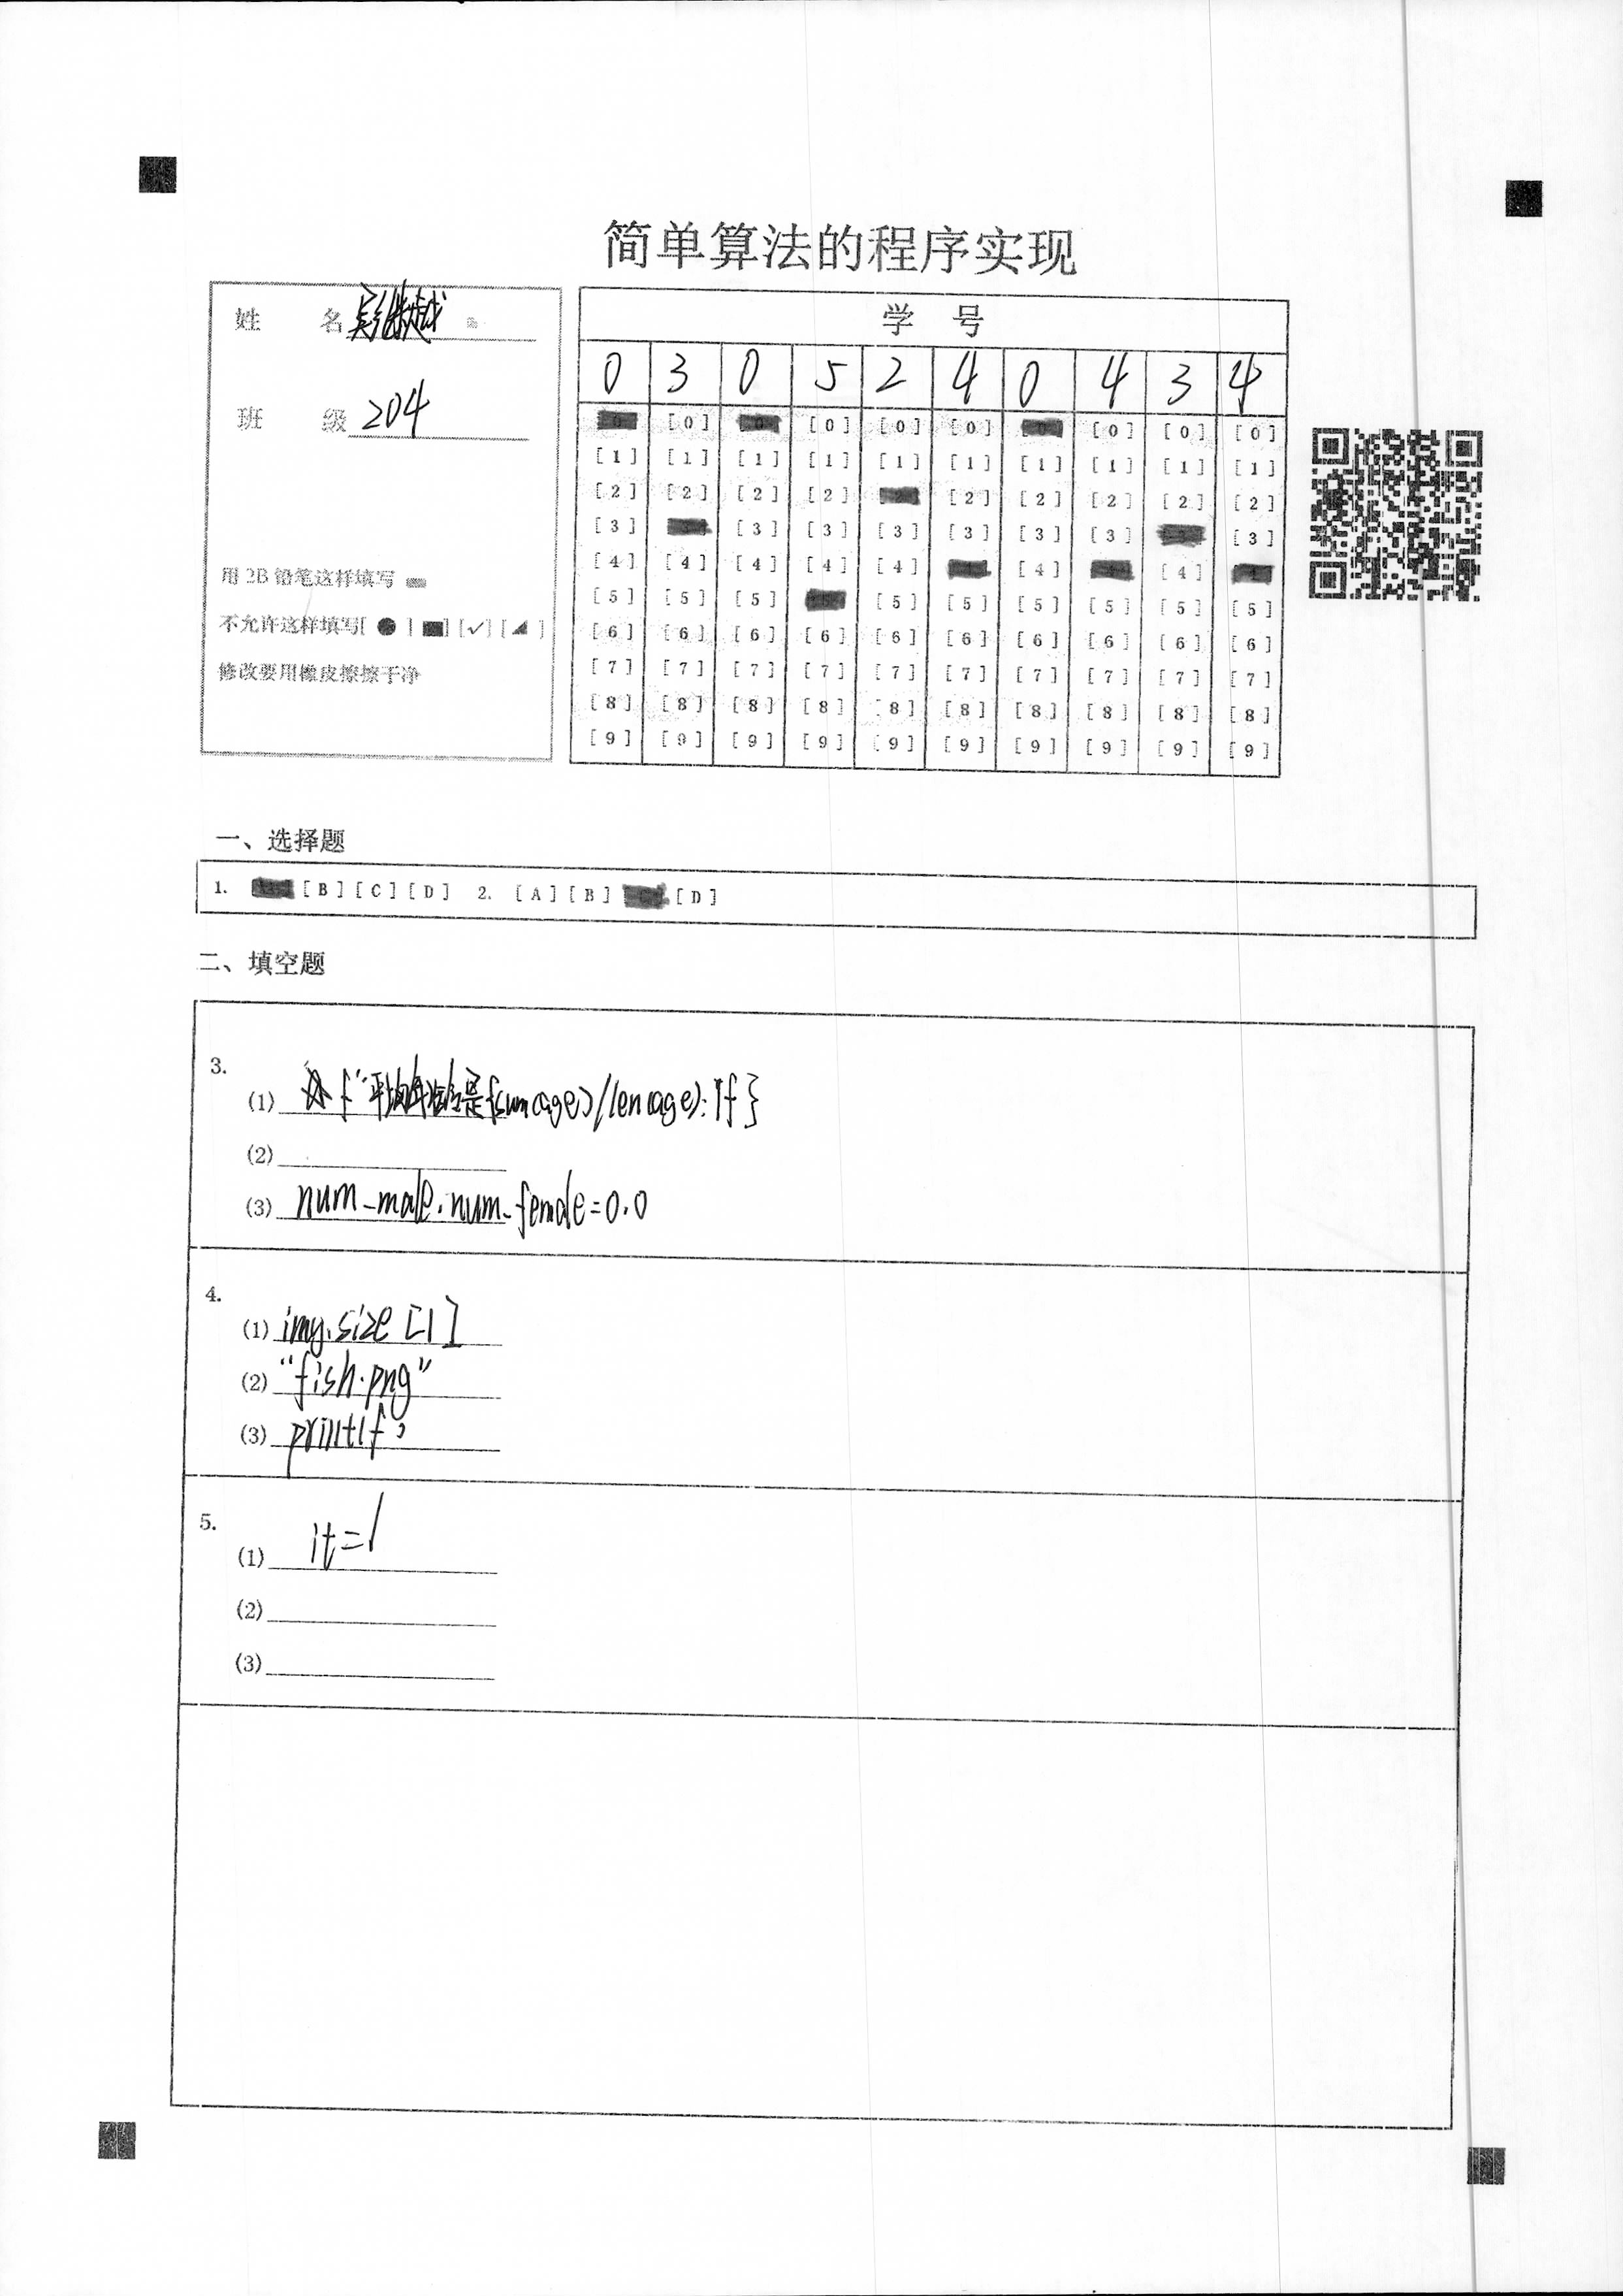 简单算法的程序实现
姓 名
班 级 204
用 2B 铅笔这样填写
不允许这样填写[ ● ] [■] [✓] [◢ ]
修改要用橡皮擦擦干净
学 号
0 3 0 5 2 4 0 4 3 4
[0] [0] [0] [0] [0] [0] [0]
[1] [1] [1] [1] [1] [1] [1] [1] [1] [1]
[2] [2] [2] [2] [2] [2] [2] [2] [2]
[3] [3] [3] [3] [3] [3] [3] [3]
[4] [4] [4] [4] [4] [4] [4]
[5] [5] [5] [5] [5] [5] [5] [5] [5]
[6] [6] [6] [6] [6] [6] [6] [6] [6] [6]
[7] [7] [7] [7] [7] [7] [7] [7] [7] [7]
[8] [8] [8] [8] [8] [8] [8] [8] [8] [8]
[9] [9] [9] [9] [9] [9] [9] [9] [9] [9]
一、选择题
1. [B] [C] [D] 2. [A] [B] [D]
二、填空题
3.
(1) f"平均年龄是{sum(age)/len(age):1f}
(2)
(3) num_male,num_female=0,0
4.
(1) img.size[1]
(2) "fish.png"
(3)
5.
(1) it=1
(2)
(3)